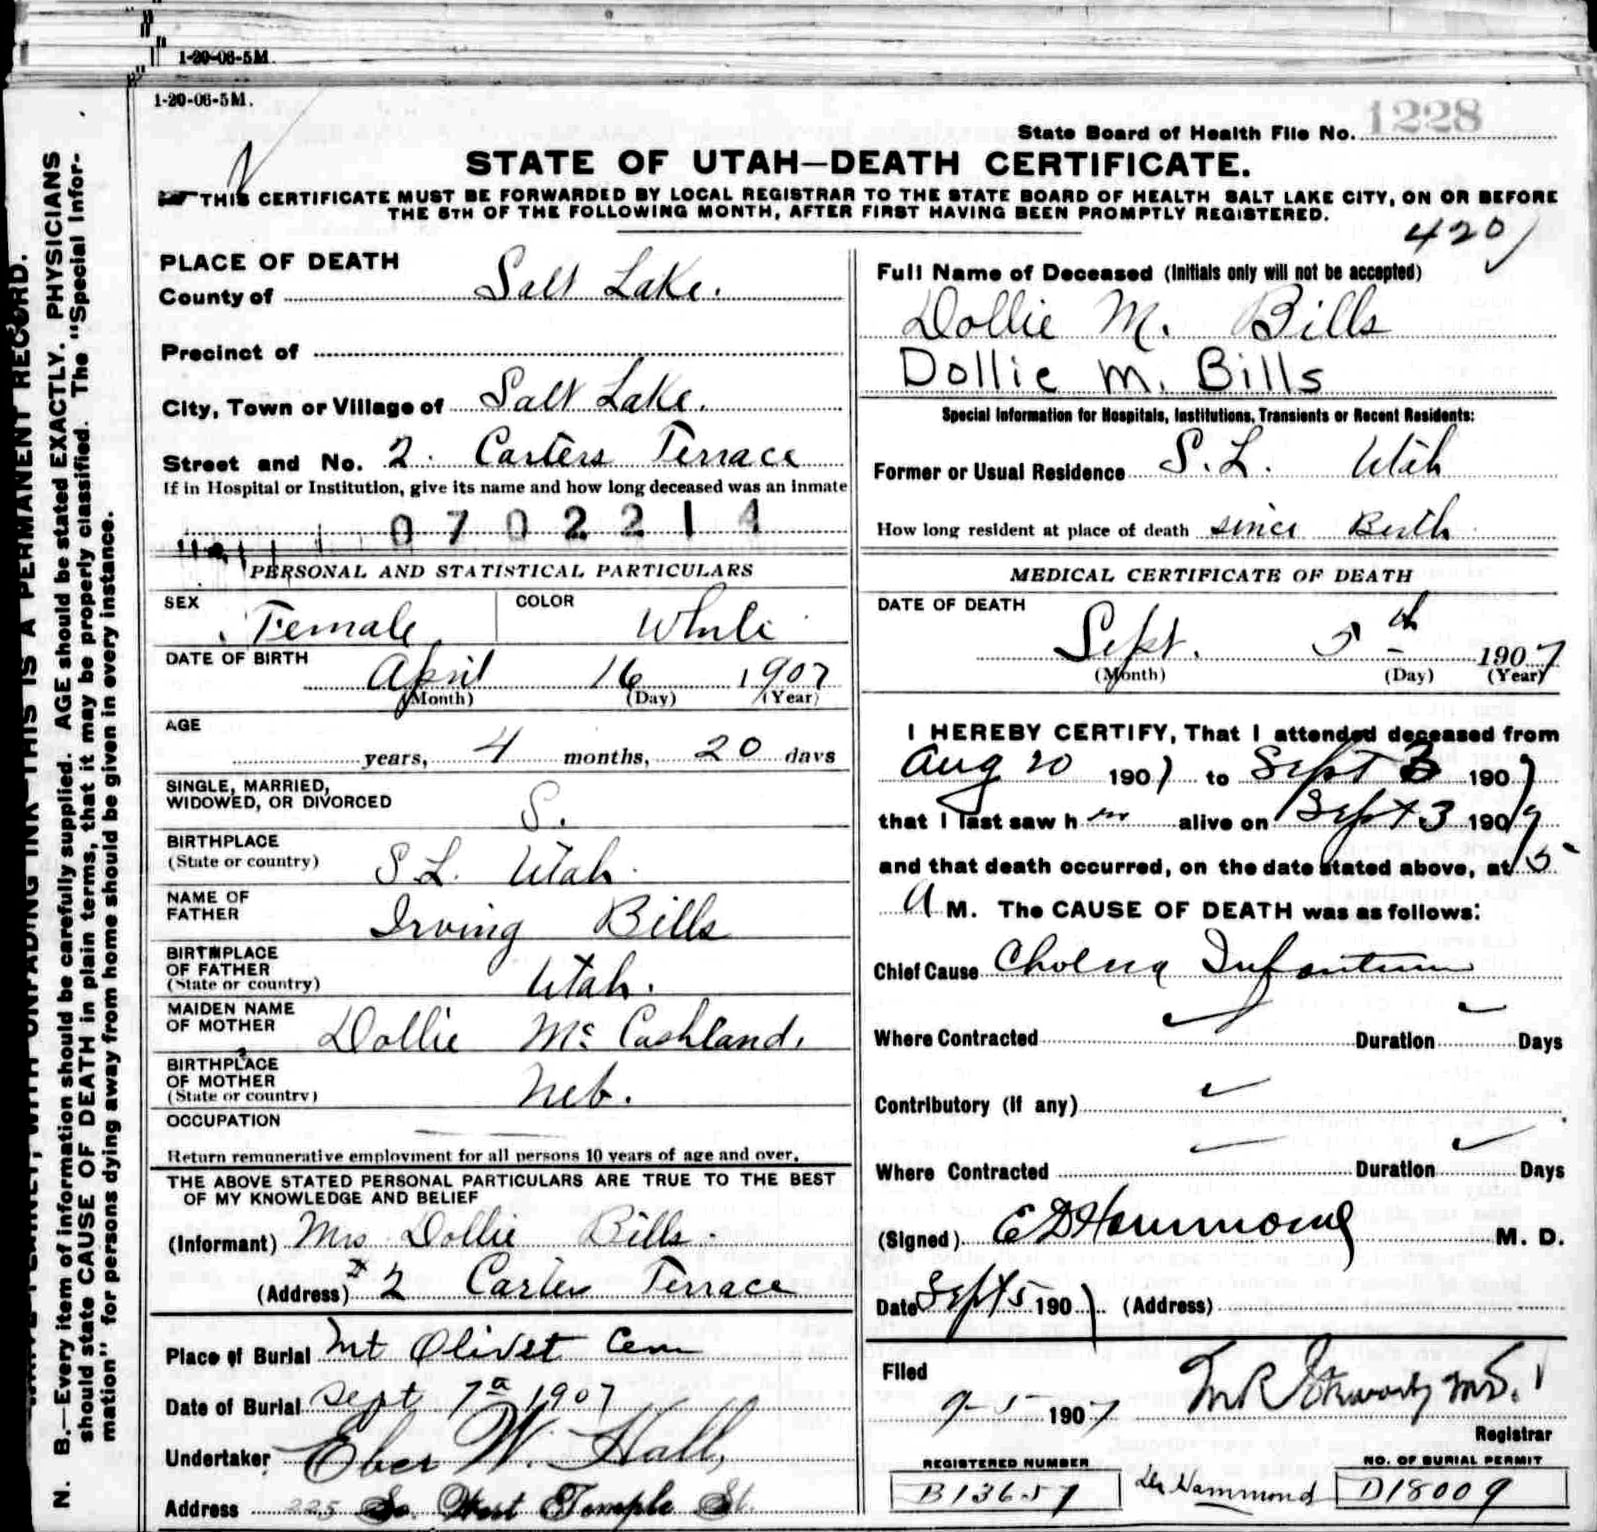 1-20-06-5M.
1-20-06-5M.
State Board of Health File No. 1228
STATE OF UTAH—DEATH CERTIFICATE.
THIS CERTIFICATE MUST BE FORWARDED BY LOCAL REGISTRAR TO THE STATE BOARD OF HEALTH SALT LAKE CITY, ON OR BEFORE
THE 5TH OF THE FOLLOWING MONTH, AFTER FIRST HAVING BEEN PROMPTLY REGISTERED.
420
PLACE OF DEATH
County of Salt Lake.
Precinct of
City, Town or Village of Salt Lake.
Street and No. 2. Carters Terrace
If in Hospital or Institution, give its name and how long deceased was an inmate
0702214
PERSONAL AND STATISTICAL PARTICULARS
SEX Female COLOR White
DATE OF BIRTH April 16 1907
(Month) (Day) (Year)
AGE
years, 4 months, 20 days
SINGLE, MARRIED,
WIDOWED, OR DIVORCED S.
BIRTHPLACE
(State or country) S L. Utah.
NAME OF
FATHER Irving Bills
BIRTHPLACE
OF FATHER
(State or country) Utah.
MAIDEN NAME
OF MOTHER Dollie Mc Cashland.
BIRTHPLACE
OF MOTHER
(State or country) Neb.
OCCUPATION
Return remunerative employment for all persons 10 years of age and over.
THE ABOVE STATED PERSONAL PARTICULARS ARE TRUE TO THE BEST
OF MY KNOWLEDGE AND BELIEF
(Informant) Mrs Dollie Bills.
(Address) # 2 Carters Terrace
Place of Burial Mt Olivet Cem
Date of Burial Sept 7th 1907
Undertaker Eber W. Hall,
Address 225 So. West Temple St.
Full Name of Deceased (Initials only will not be accepted)
Dollie M. Bills
Dollie M. Bills
Special Information for Hospitals, Institutions, Transients or Recent Residents:
Former or Usual Residence S.L. Utah
How long resident at place of death since Birth
MEDICAL CERTIFICATE OF DEATH
DATE OF DEATH
Sept. 5th 1907
(Month) (Day) (Year)
I HEREBY CERTIFY, That I attended deceased from
Aug 20 1907 to Sept 3 1907
that I last saw h alive on Sept 3 1907
and that death occurred, on the date stated above, at 5
A M. The CAUSE OF DEATH was as follows:
Chief Cause Cholera Infantum
Where Contracted Duration Days
Contributory (if any)
Where Contracted Duration Days
(Signed) E D Hammond M. D.
Date Sept 5 1907 (Address)
Filed
9-5- 1907
Registrar
REGISTERED NUMBER
B13657
Dr Hammond
NO. OF BURIAL PERMIT
D18009
WRITE PLAINLY, WITH UNFADING INK—THIS IS A PERMANENT RECORD.
N. B.—Every item of information should be carefully supplied. AGE should be stated EXACTLY. PHYSICIANS
should state CAUSE OF DEATH in plain terms, that it may be properly classified. The "Special Infor-
mation" for persons dying away from home should be given in every instance.